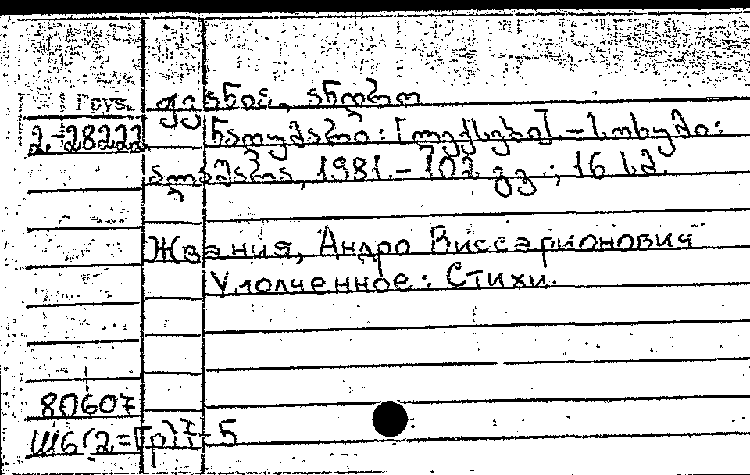 Груз. ჟვანია, ანდრო
2-28222 ნათქვამი: [ლექსები] – სოხუმი:
ალაშარა, 1981. – 102 გვ.; 16 სმ.
Жвания, Андро Виссарионович
Умолченное: Стихи.
80607
Ш6(2=Гр)7-5